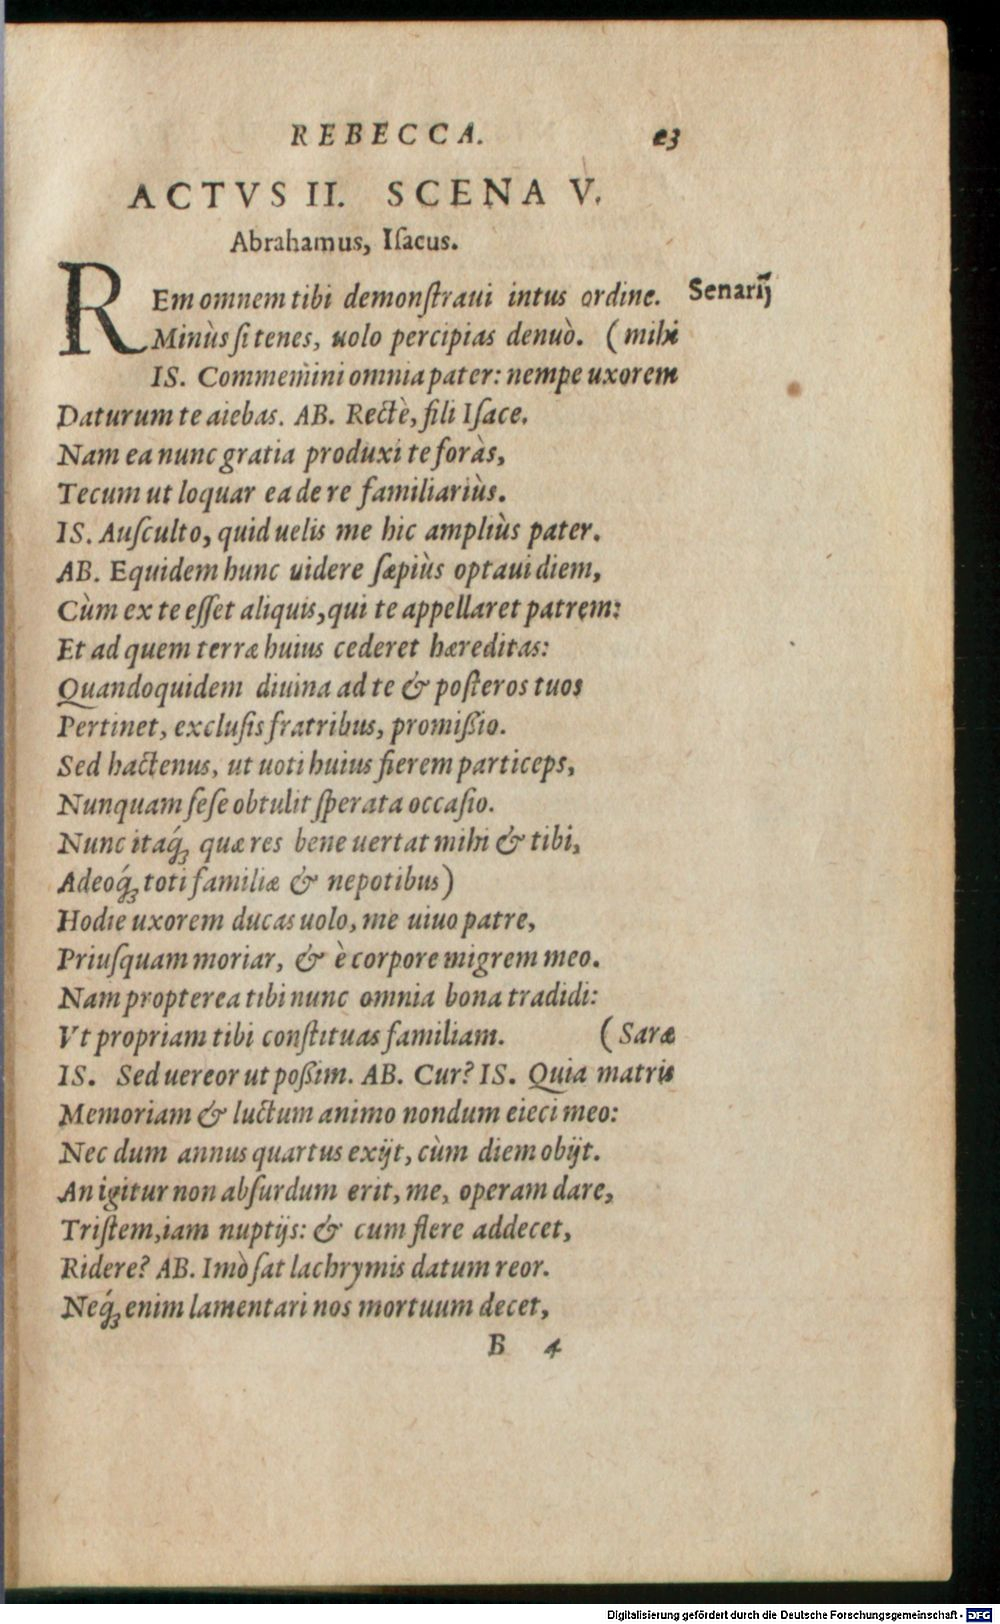 REBECCA. e3
ACTVS II. SCENA V.
Abrahamus, Iſacus.
REm omnem tibi demonſtraui intus ordine. Senarij
Minùs ſi tenes, uolo percipias denuò. (mihi
IS. Commemini omnia pater: nempe uxorem
Daturum te aiebas. AB. Rectè, fili Iſace.
Nam ea nunc gratia produxi te foràs,
Tecum ut loquar ea de re familiariùs.
IS. Auſculto, quid uelis me hic ampliùs pater.
AB. Equidem hunc uidere ſæpiùs optaui diem,
Cùm ex te eſſet aliquis, qui te appellaret patrem:
Et ad quem terræ huius cederet hæreditas:
Quandoquidem diuina ad te & poſteros tuos
Pertinet, excluſis fratribus, promißio.
Sed hactenus, ut uoti huius fierem particeps,
Nunquam ſeſe obtulit ſperata occaſio.
Nunc itaq́ꝫ quæ res bene uertat mihi & tibi,
Adeoq́ꝫ toti familiæ & nepotibus)
Hodie uxorem ducas uolo, me uiuo patre,
Priuſquam moriar, & è corpore migrem meo.
Nam propterea tibi nunc omnia bona tradidi:
Vt propriam tibi conſtituas familiam. (Saræ
IS. Sed uereor ut poßim. AB. Cur? IS. Quia matris
Memoriam & luctum animo nondum eieci meo:
Nec dum annus quartus exijt, cùm diem obijt.
An igitur non abſurdum erit, me, operam dare,
Triſtem, iam nuptijs: & cum flere addecet,
Ridere? AB. Imò ſat lachrymis datum reor.
Neq́ꝫ enim lamentari nos mortuum decet,
B 4
Digitalisierung gefördert durch die Deutsche Forschungsgemeinschaft - DFG